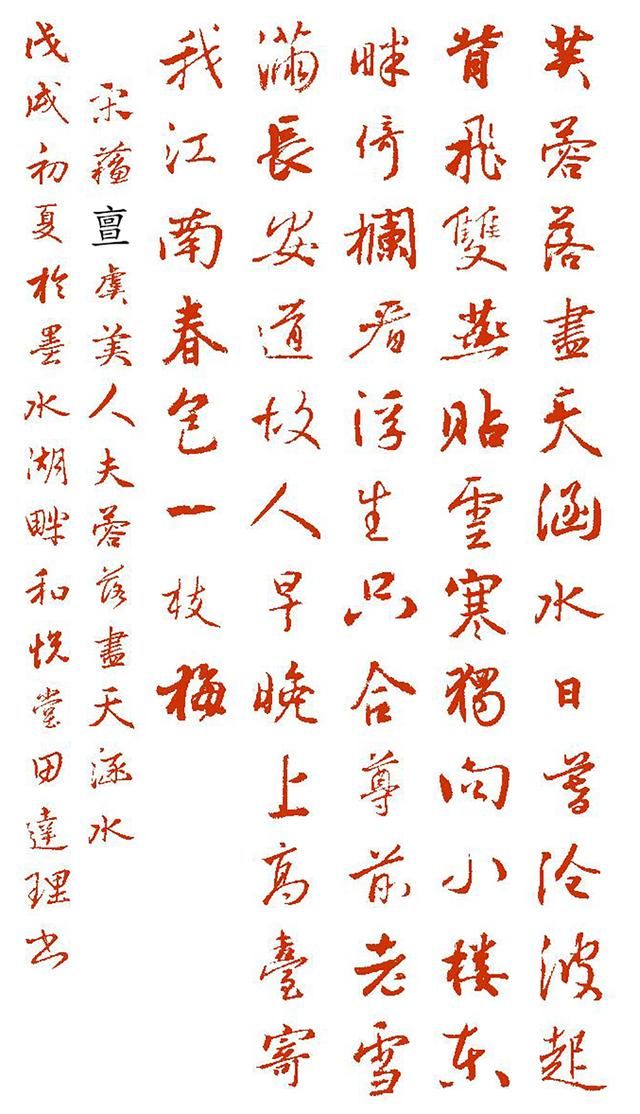 芙蓉落盡天涵水日暮沧波起
背飛雙燕貼雲寒獨向小楼東
畔倚欄看浮生只合尊前老雪
滿長安道故人早晚上高臺寄
我江南春色一枝梅
宋亶虞美人夫蓉落盡天涵水
戊戌初夏於墨水湖畔和悦堂田達理书